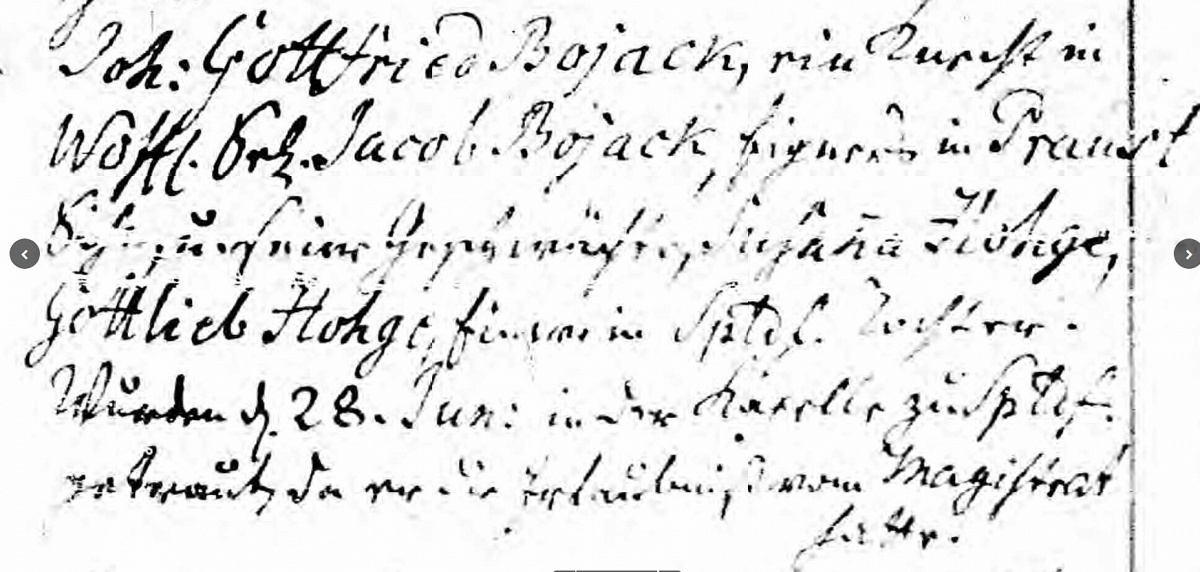 Joh: Gottfried Bojack, ein Knecht in
Woßl. Jacob Bojack, Eigners in Praust
Sohn, u. seine Geschwächte, Susaña Hohge,
Gottlieb Hohge, Einw. in Sptdf. Tochter.
Wurden d. 28. Jun: in der Kapelle zu Sptdf.
getraut, da er die Erlaubniß vom Magistrat
hatte.